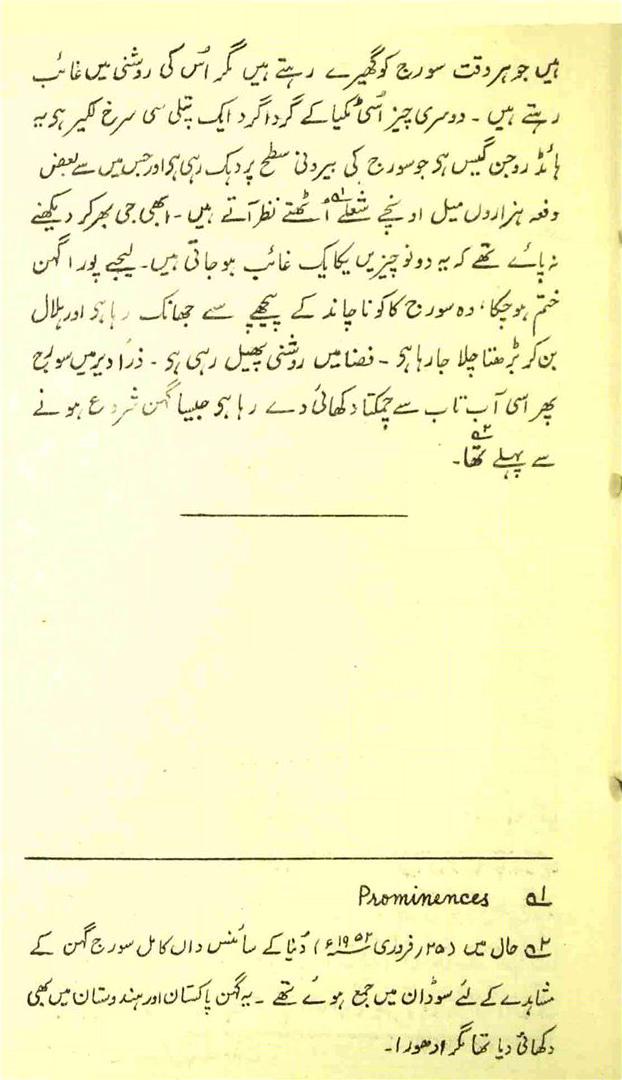 ہیں جو ہر وقت سورج کو گھیرے رہتے ہیں مگر اُس کی روشنی میں غائب
رہتے ہیں ۔ دوسری چیز اُسی ٹکیا کے گردا گرد ایک پتلی سی سرخ لکیر ہی یہ
ہائڈروجن گیس ہی جو سورج کی بیرونی سطح پر دہک رہی ہی اور جس میں سے بعض
دفعہ ہزاروں میل اونچے شعلے۱؎ اُٹھتے نظر آتے ہیں ۔ ابھی جی بھر کر دیکھنے
نہ پائے تھے کہ یہ دونو چیزیں یکایک غائب ہو جاتی ہیں۔ لیجیے پورا گہن
ختم ہو چکا، وہ سورج کا کونا چاند کے پیچھے سے جھانک رہا ہی اور ہلال
بن کر بڑھتا چلا جا رہا ہی ۔ فضا میں روشنی پھیل رہی ہی ۔ ذرا دیر میں سورج
پھر اسی آب تاب سے چمکتا دکھائی دے رہا ہی جیسا گہن شروع ہونے
سے پہلے تھا۲؎۔
۱؎ Prominences
۲؎ حال میں (۲۵؍ فروری ۱۹۵۲ء) دُنیا کے سائنس داں کامل سورج گہن کے
مشاہدے کے لئے سوڈان میں جمع ہوئے تھے ۔ یہ گہن پاکستان اور ہندوستان میں بھی
دکھائی دیا تھا مگر ادھورا۔